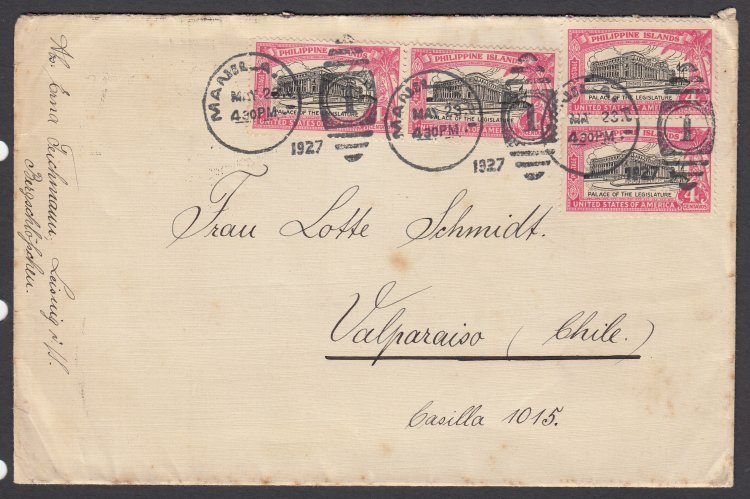 PHILIPPINE ISLANDS
PALACE OF THE LEGISLATURE
UNITED STATES OF AMERICA
PHILIPPINE ISLANDS
PALACE OF THE LEGISLATURE
UNITED STATES OF AMERICA
4
PHILIPPINE ISLANDS
PALACE OF THE LEGISLATURE
UNITED STATES OF AMERICA
PHILIPPINE ISLANDS
PALACE OF THE LEGISLATURE
UNITED STATES OF AMERICA
4
CENTAVOS
MANILA
MAY 28
4 30PM
1
1927
MANILA
MAY 28
4 30PM
1
1927
4 30PM
1
1927
Frau Lotte Schmidt.
Valparaiso (Chile.)
Casilla 1015.
Abs. Erna Teichmann, Leisnig i/S.
Bergschlößchen.